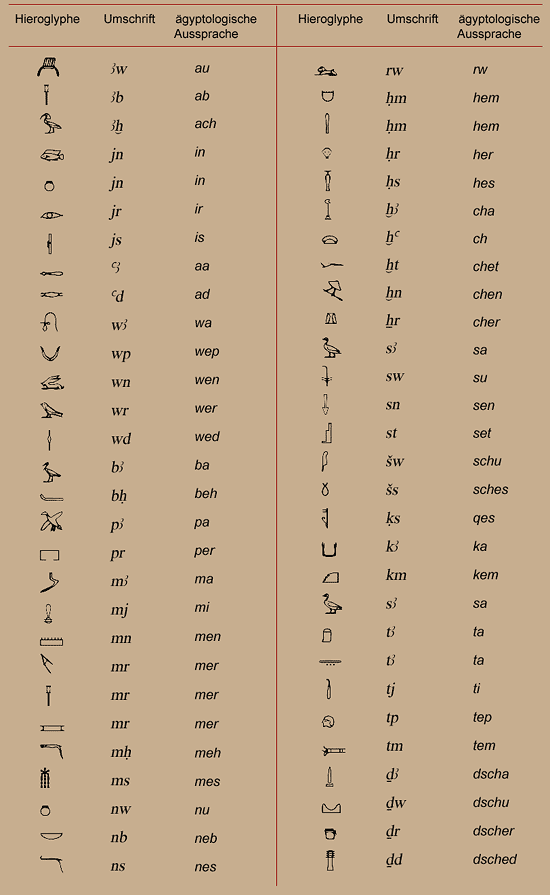 Hieroglyphe Umschrift ägyptologische
Aussprache
ꜣw au
ꜣb ab
ꜣḫ ach
jn in
jn in
jr ir
js is
ꜥꜣ aa
ꜥd ad
wꜣ wa
wp wep
wn wen
wr wer
wd wed
bꜣ ba
bḥ beh
pꜣ pa
pr per
mꜣ ma
mj mi
mn men
mr mer
mr mer
mr mer
mḥ meh
ms mes
nw nu
nb neb
ns nes
Hieroglyphe Umschrift ägyptologische
Aussprache
rw rw
ḥm hem
ḥm hem
ḥr her
ḥs hes
ḫꜣ cha
ḫꜥ ch
ḫt chet
ḫn chen
ẖr cher
sꜣ sa
sw su
sn sen
st set
šw schu
šs sches
ḳs qes
kꜣ ka
km kem
sꜣ sa
tꜣ ta
tꜣ ta
tj ti
tp tep
tm tem
ḏꜣ dscha
ḏw dschu
ḏr dscher
ḏd dsched